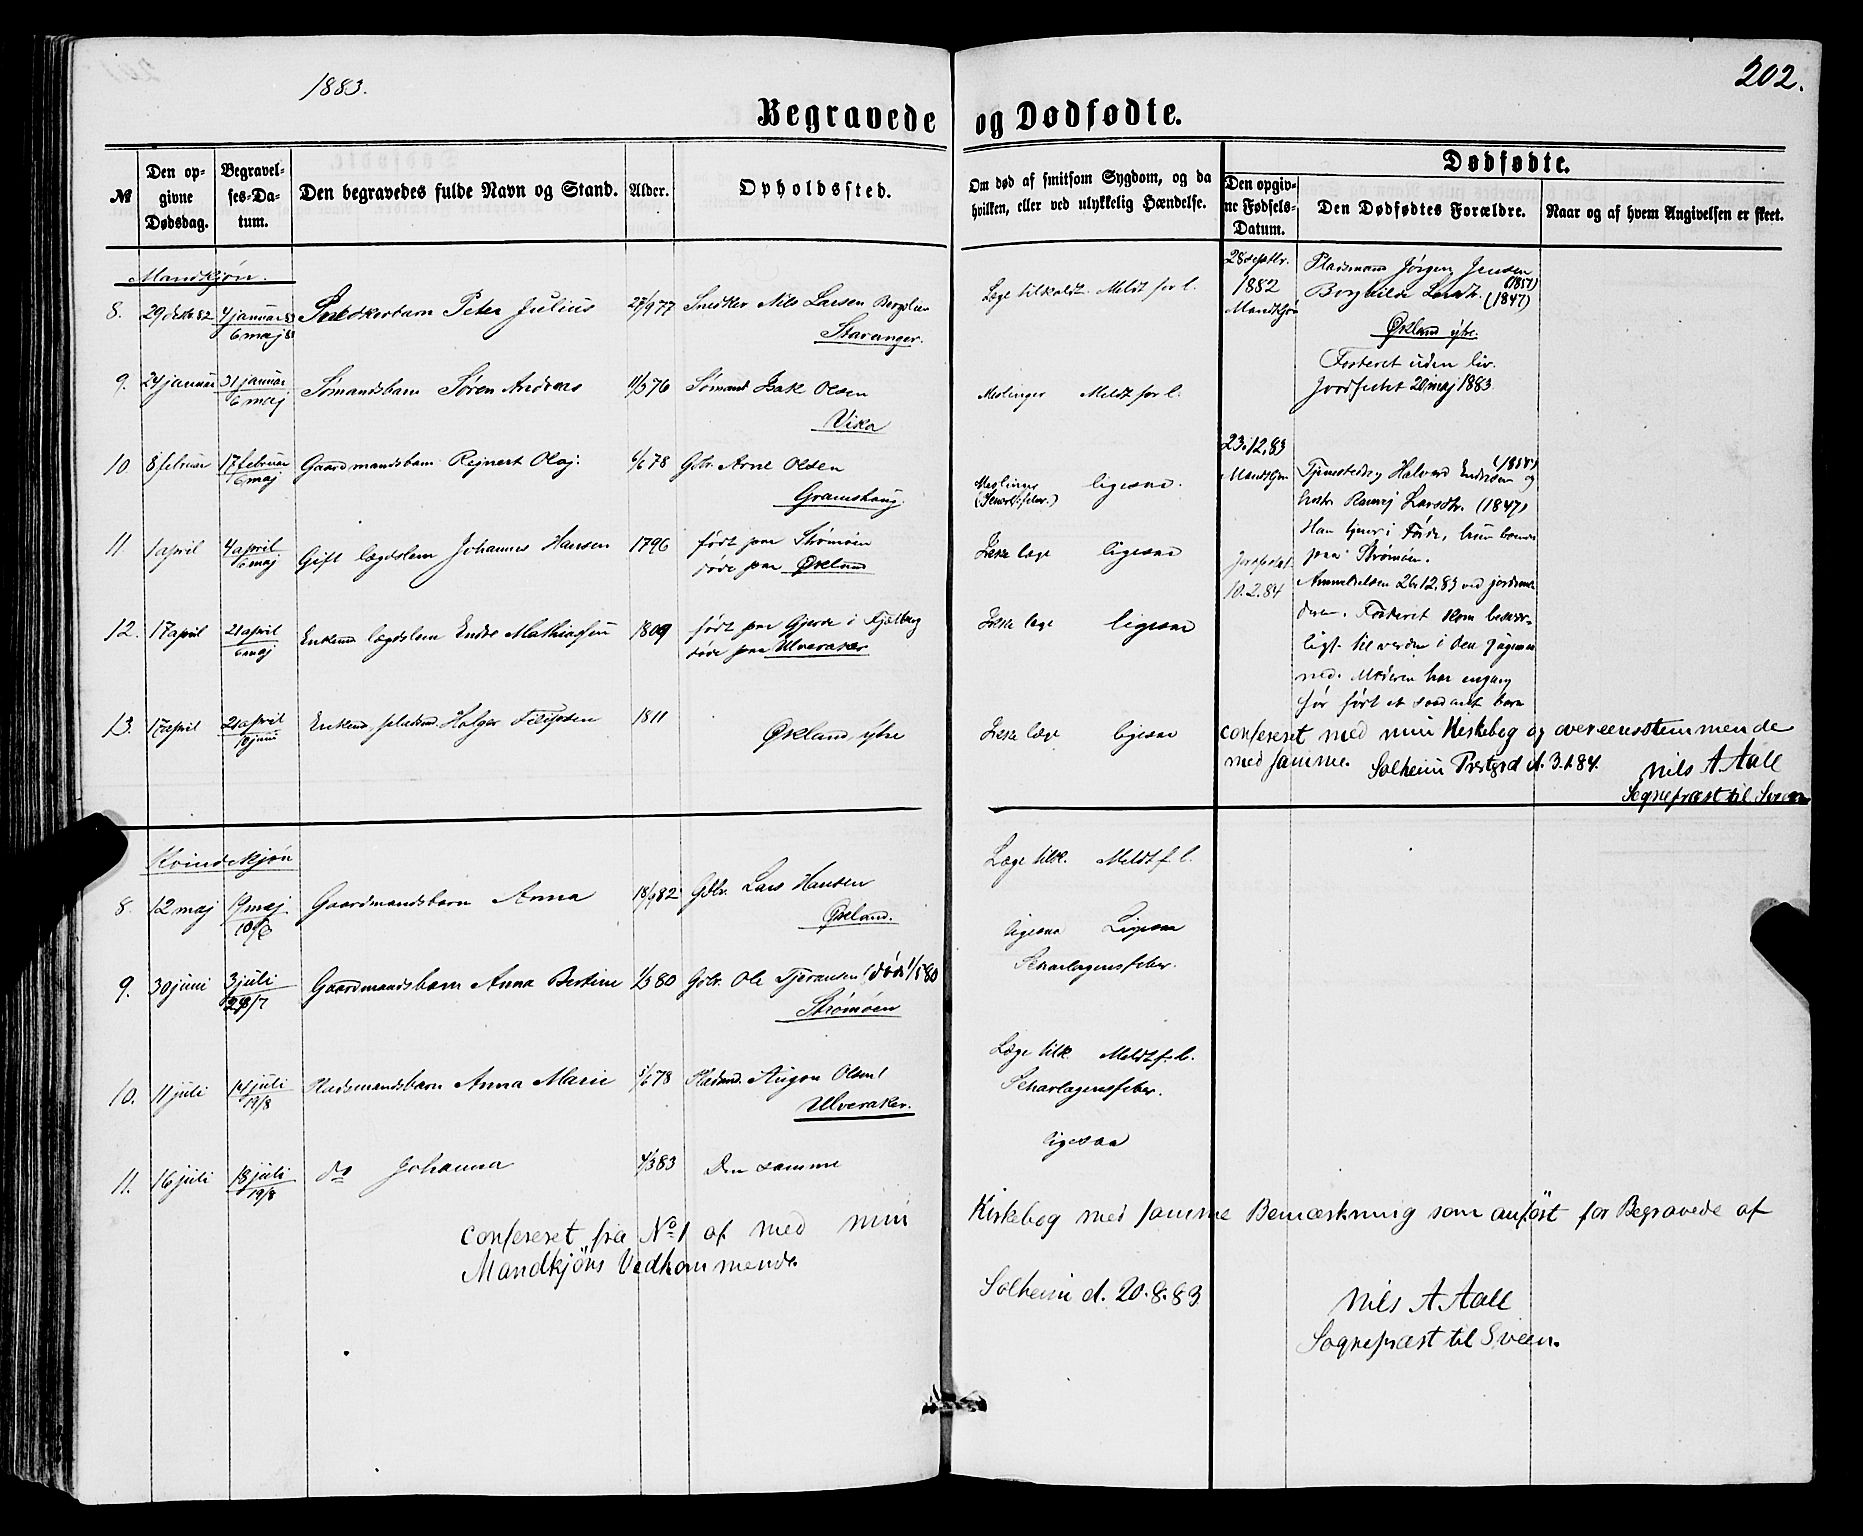 1883.
202.
Begravede og Dødfødte.
Dødfødte.
№
Den opgivne Dødsdag.
Begravelses-Datum.
Den begravedes fulde Navn og Stand.
Alder.
Opholdssted.
Om død af smitsom Sygdom, og da hvilken, eller ved ulykkelig Hændelse.
Den opgivne Fødsels-Datum.
Den Dødfødtes Forældre.
Naar og af hvem Angivelsen er skeet.
Mandkjøn.
8. 29 decbr 82 4 januar 83 Snedkerbarn Peter Julius 27/9 77 Snedker Nils Larsen
6 maj 83 Stavanger.
Læge tilkaldt. Meldt for l.
9. 24 januar 31 januar Sømandsbarn Søren Andreas 11/3 76 Sømand Isak Olsen
6 maj Vika
Meslinger Meldt for l.
10 8 februar 17 februar Gaardmandsbarn Rejnert Olaj. 6/6 78 Gbr. Arne Olsen
6 maj Gramshaug.
Meslinger ligesaa.
11 1 april 4 april Gift lægdslem Johannes Hansen 1796 født paa Strømøen
6 maj døde paa Økland
Ikke læge ligesaa
12. 17 april 21 april Enkemd lægdslem Endre Mathiassen 1809 født paa Gjerde i Fjelberg
6 maj døde paa Ulveraker
Ikke læge ligesaa
13. 17 april 21 april Enkemd pladsmd. Holger Filipsen 1811
10 juni Økland ytre
Ikke læge ligesaa
28 septbr. Pladsmand Jørgen Jensen (1857)
1882 Borghilda Larsdtr. (1847)
Mandkjøn
Økland ytre.
Fosteret uden liv.
Jordfæstet 20 maj 1883.
23.12.83
Mandkjøn Tjenestedreng Halvard Endresen og
Larsdtr. (1847)
Han tjener i Førde, hun
paa Strømøen.
Jordfæstet
10.2.84 Anmeldelsen 26.12.83 ved jordemo-
deren. Fosteret kom besvær-
ligt til verden i den
Moderen har engang
før født et saadant barn
conferert med min Kirkebog og overeensstemmende
med samme. Solheim Prstgrd d. 3.1.84. Nils A. Aall
Sognepræst til Sveen
Kvindekjøn
8. 12 maj 19 maj Gaardmandsbarn Anna 18/9 82 Gbr. Lars Hansen
10/6 Økland.
Læge tilk. Meldt f. l.
9. 30 juni 3 juli Gaardmandsbarn Anna Bertine 1/3 80 Gbr. Ole Tjeransen (død 1/1 80
29/7 Strømøen
ligesaa Ligesaa
Scharlagensfeber.
10. 11 juli 14 juli Pladsmandsbarn Anna Marie 5/6 78 Pladsmd. Augon Olsen
19/8 Ulveraker.
Læge tilk. Meldt f. l.
Scharlagensfeber.
11. 16 juli 18 juli do Johanna 4/3 83 Den samme
19/8
ligesaa
confereret fra No 1 af med min Kirkebog med samme Bemærkning som anført for Begravede af
Mandkjøns Vedkommende.
Solheim d. 20.8.83
Nils A Aall
Sognepræst til Sveen.